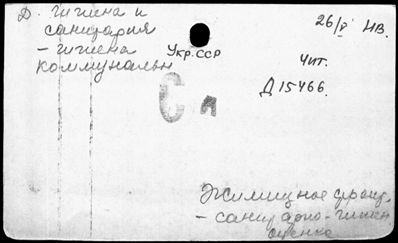 Д. гигиена и
санитария
– гигиена
коммунальн
Укр.ССР
26/V НВ.
Чит.
Д 15466.
С л
Жилищное
– санитарно-гигиен
оценка